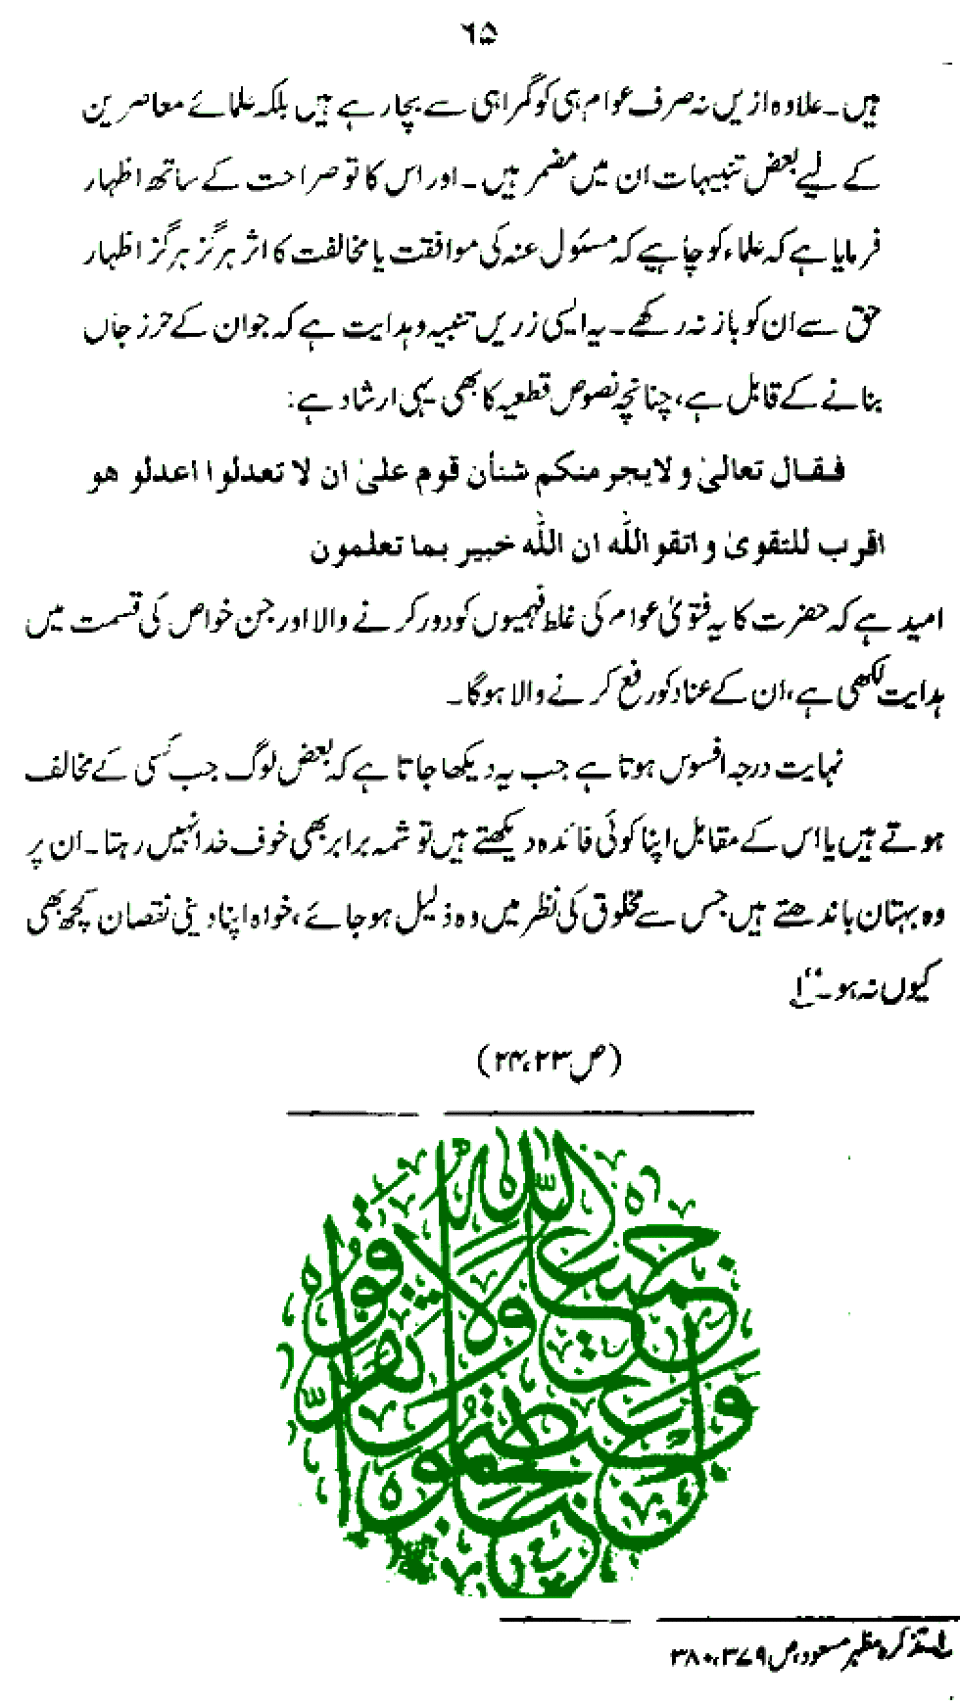 ۶۵
ہیں۔ علاوہ ازیں نہ صرف عوام ہی کو گمراہی سے بچا رہے ہیں بلکہ علمائے معاصرین
کے لیے بعض تنبیہات ان میں مضمر ہیں۔ اور اس کا تو صراحت کے ساتھ اظہار
فرمایا ہے کہ علماء کو چاہیے کہ مسئول عنہ کی موافقت یا مخالفت کا اثر ہرگز ہرگز اظہار
حق سے ان کو باز نہ رکھے۔ یہ ایسی زریں تنبیہ و ہدایت ہے کہ جو ان کے حرز جاں
بنانے کے قابل ہے، چنانچہ نصوص قطعیہ کا بھی یہی ارشاد ہے:
فقال تعالیٰ ولا یجرمنکم شنأن قوم علیٰ ان لا تعدلوا اعدلو هو
اقرب للتقویٰ واتقو اللّٰه ان اللّٰه خبیر بما تعلمون
امید ہے کہ حضرت کا یہ فتویٰ عوام کی غلط فہمیوں کو دور کرنے والا اور جن خواص کی قسمت میں
ہدایت لکھی ہے، ان کے عناد کو رفع کرنے والا ہوگا۔
نہایت درجہ افسوس ہوتا ہے جب یہ دیکھا جاتا ہے کہ بعض لوگ جب کسی کے مخالف
ہوتے ہیں یا اس کے مقابل اپنا کوئی فائدہ دیکھتے ہیں تو شمہ برابر بھی خوف خدا نہیں رہتا۔ ان پر
وہ بہتان باندھتے ہیں جس سے مخلوق کی نظر میں وہ ذلیل ہو جائے، خواہ اپنا دینی نقصان کچھ بھی
کیوں نہ ہو۔“ ۱
(ص ۲۳، ۲۴)
واعتصموا بحبل الله جميعا ولا تفرقوا
۱ تذکرہ مظہر مسعود، ص ۳۷۹، ۳۸۰